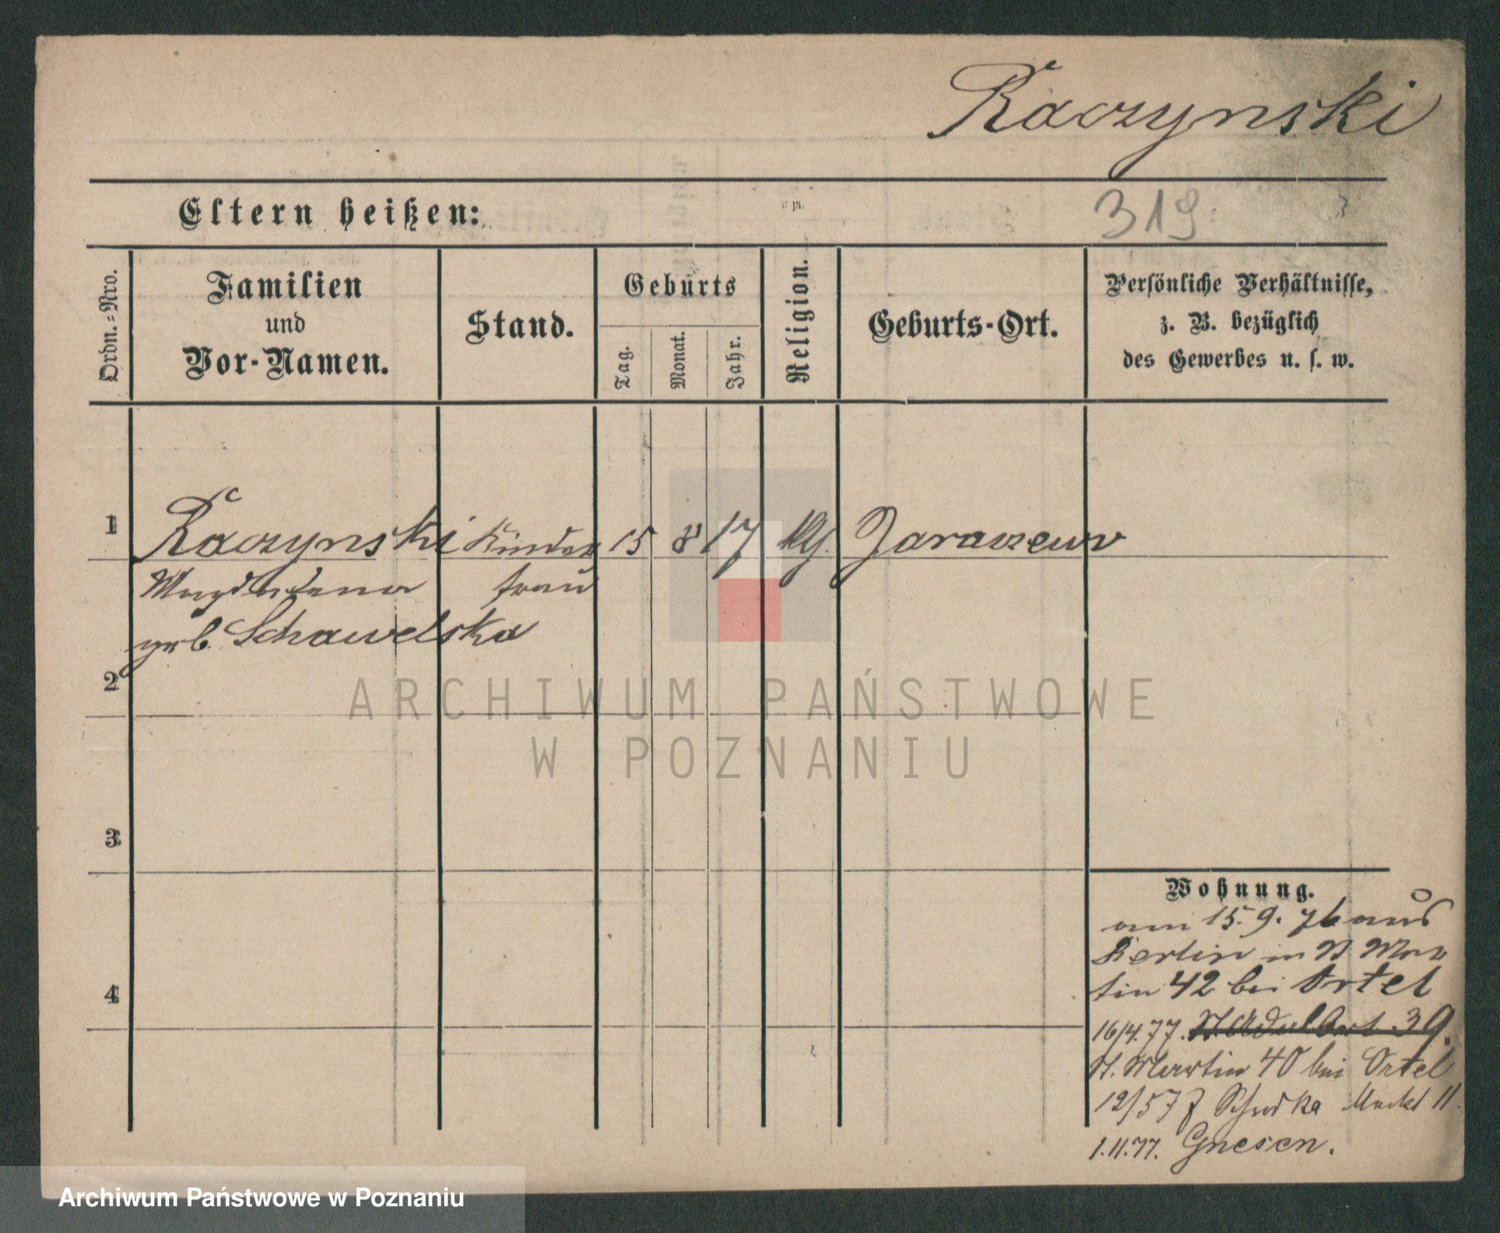 Raczynski
Eltern heißen:
319
Ordn.-Nro.
Familien
und
Vor-Namen.
Stand.
Geburts
Tag.
Monat.
Jahr.
Religion.
Geburts-Ort.
Persönliche Verhältnisse,
z. B. bezüglich
des Gewerbes u. s. w.
1
Raczynski Kinder 15 8 17 Jaraczewo
Magdalena frau
geb. Schawelska
2
ARCHIWUM PAŃSTWOWE
W POZNANIU
3
Wohnung.
am 15. 9. 76 aus
Berlin in St Mar
tin 42 bei Ortel
4
16/4.77. St. Adalbert. 39.
St. Martin 40 bei Ortel
12/5 77 Markt 11.
1.11.77. Gnesen.
Archiwum Państwowe w Poznaniu